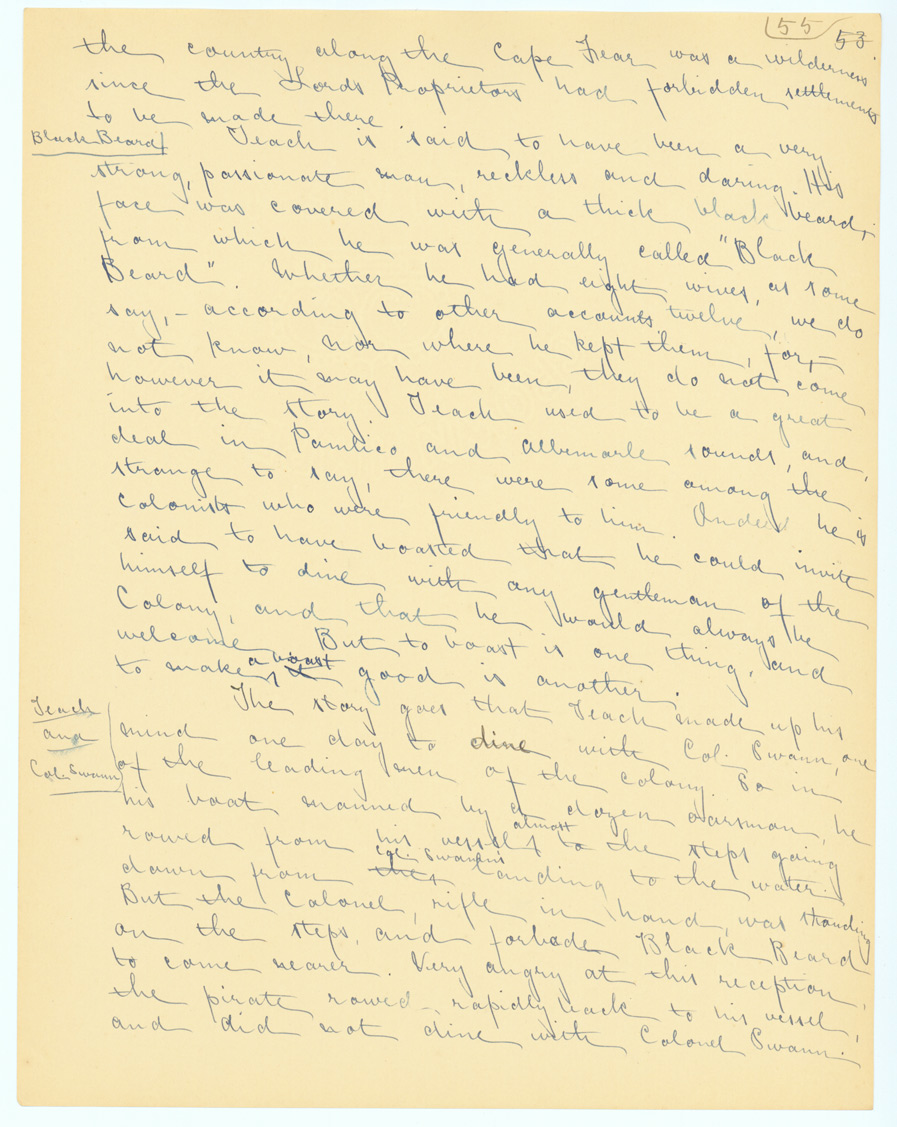 55 53
the country along the Cape Fear was a wilderness
since the Lords Proprietors had forbidden settlements
to be made there
Black Beard
Teach is said to have been a very
strong, passionate man, reckless and daring. His
face was covered with a thick black beard,
from which he was generally called "Black
Beard". Whether he had eight wives, as some
say, - according to other accounts twelve, we do
not know, nor where he kept them, for, -
however it may have been, they do not come
into the story. Teach used to be a great
deal in Pamlico and Albemarle sounds, and,
strange to say, there were some among the
Colonists who were friendly to him. Indeed he is
said to have boasted that he could invite
himself to dine with any gentleman of the
Colony, and that he would always be
welcome. But to boast is one thing, and
to make a boast it good is another.
The story goes that Teach made up his
Teach
and
Col. Swann
mind one day to dine with Col. Swann, one
of the leading men of the colony. So in
his boat manned by a dozen oarsman, he
rowed from his vessel almost to the steps going
down from the Col. Swann's landing to the water.
But the Colonel, rifle in hand, was standing
on the steps, and forbade Black Beard
to come nearer. Very angry at this reception,
the pirate rowed rapidly back to his vessel,
and did not dine with Colonel Swann.